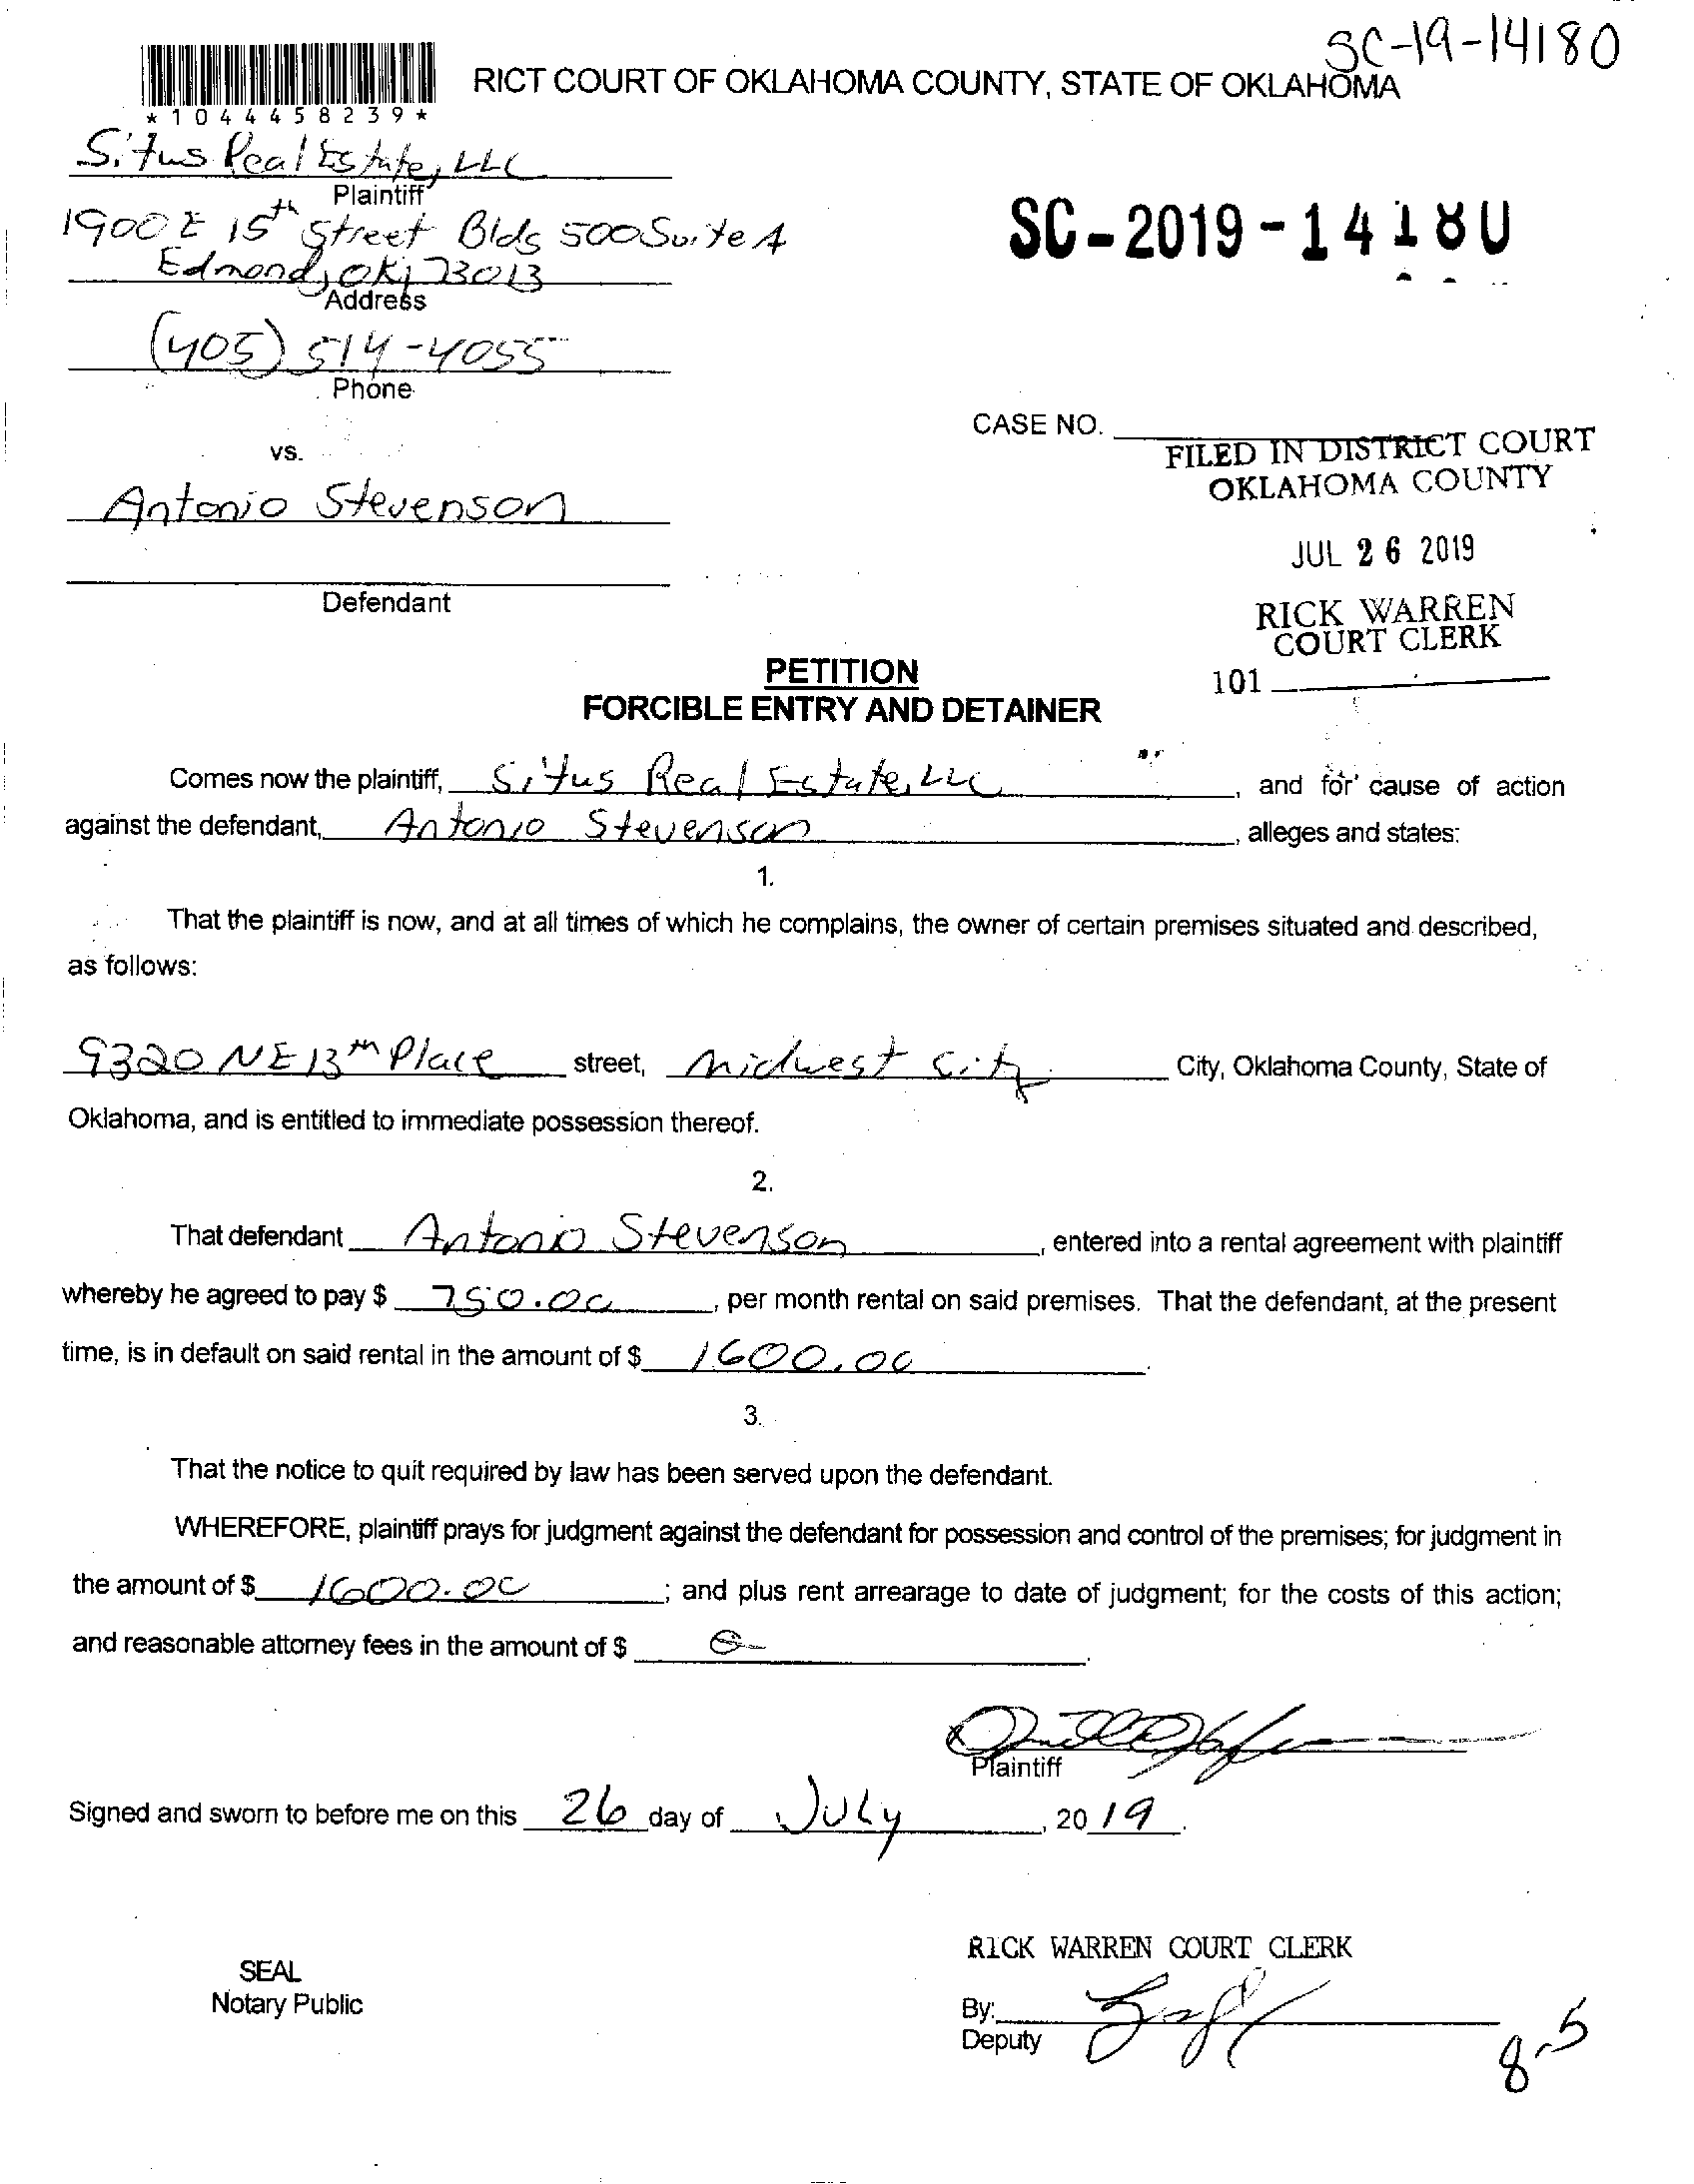 SC-19-14180
RICT COURT OF OKLAHOMA COUNTY, STATE OF OKLAHOMA
*1044458239*
Situs Real Estate, LLC
Plaintiff
1900 E 15th Street Bldg 500 Suite A
Edmond, OK, 73013
Address
SC-2019-14180
(405) 514-4055
Phone
CASE NO.
vs.
FILED IN DISTRICT COURT
OKLAHOMA COUNTY
Antonio Stevenson
JUL 26 2019
Defendant
RICK WARREN
COURT CLERK
101
PETITION
FORCIBLE ENTRY AND DETAINER
Comes now the plaintiff, Situs Real Estate, LLC, and for cause of action
against the defendant, Antonio Stevenson, alleges and states:
1.
That the plaintiff is now, and at all times of which he complains, the owner of certain premises situated and described,
as follows:
9320 NE 13th Place street, Midwest City City, Oklahoma County, State of
Oklahoma, and is entitled to immediate possession thereof.
2.
That defendant Antonio Stevenson, entered into a rental agreement with plaintiff
whereby he agreed to pay $ 750.00, per month rental on said premises. That the defendant, at the present
time, is in default on said rental in the amount of $ 1600.00.
3.
That the notice to quit required by law has been served upon the defendant.
WHEREFORE, plaintiff prays for judgment against the defendant for possession and control of the premises; for judgment in
the amount of $ 1600.00; and plus rent arrearage to date of judgment; for the costs of this action;
and reasonable attorney fees in the amount of $ .
Plaintiff
Signed and sworn to before me on this 26 day of July, 2019.
RICK WARREN COURT CLERK
SEAL
Notary Public
By:
Deputy
8-5